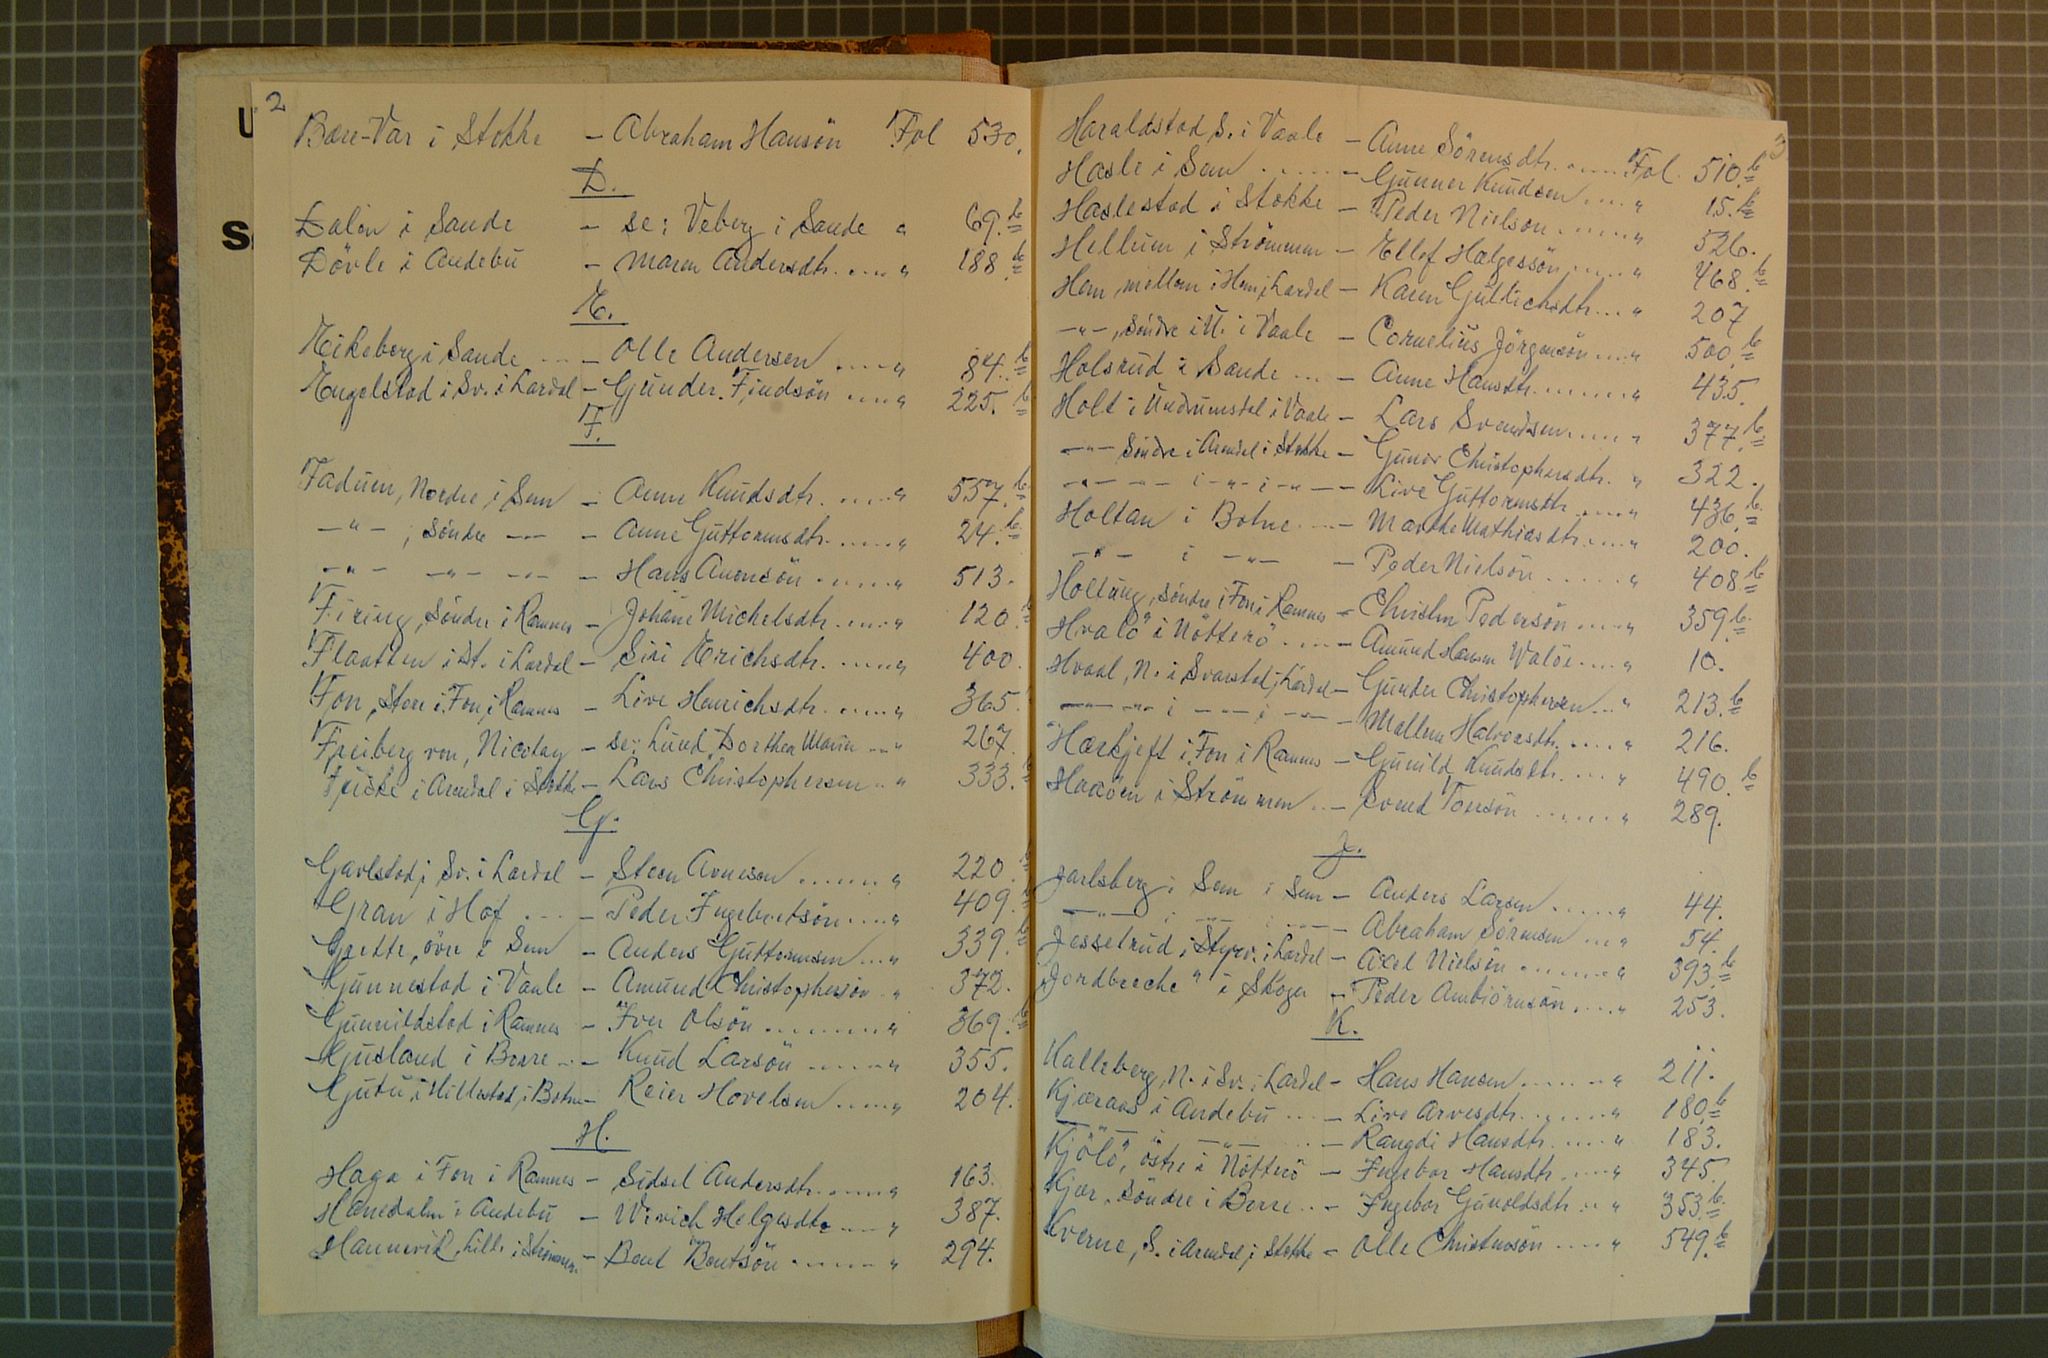 2
Bære-Vær i Stokke - Abraham Hansön Fol 530.
D.
Dalen i Sande - se: Veberg i Sande " 69. b
Dövle i Andebu - Maren Andersdtr. .... " 188. b
E.
Eikeberg i Sande ... - Olle Andersen .... " 84. b
Engelstad i Sv. i Lardal - Gunder Findsön .... " 225. b
F.
Fadum, Nordre i Sem - Anne Knudsdtr. .... " 557. b
-"-, Söndre -"- - Anne Guttormsdtr. .... " 24. b
-"- -"- -"- - Hans Anensön ..... " 513.
Firing, Söndre i Ramnes - Johane Michelsdtr. .... " 120. b
Flaatten i St. i Lardal - Siri Erichsdtr. .... " 400.
Fon, Store i Fon i Ramnes - Live Henrichsdtr. .... " 365.
Freiberg von, Nicolay - se: Lund, Dorthea Maria .. " 267.
i Arendal i Stokke - Lars Christophersen .. " 333. b
G.
Gavlstad i Sv. i Lardal - Steen Arnesen ...... " 220. b
Gran i Hof ... - Peder Ingebretsön .... " 409. b
Grette, övre i Sem - Anders Guttormsen ... " 339. b
Gunnestad i Vaale - Amund Christophersön .. " 372.
Gunnildstad i Ramnes - Iver Olsön ....... " 369. b
Gusland i Borre ... - Knud Larsön ..... " 355.
Gutu i Hillestad i Botne - Reier Hovelsen .... " 204.
H.
Haga i Fon i Ramnes - Sidsel Andersdtr. .... " 163.
Hanedalen i Andebu - Wivich Helgesdtr. ... " 387.
Hannevik, Lille i Strömm. - Bent Bentsön ..... " 294.
3
Haraldstad S. i Vaale - Anne Sörensdtr. .... Fol. 510. b
Hasle i Sem ..... - Gunner Knudsen .... " 15. b
Haslestad i Stokke - Peder Nielson ..... " 526.
Hellum i Strömmen - Ellef Helgessön .... " 468. b
Hem, mellem i Hem i Lardal - Karen Gullichsdtr. ... " 207
-"-, Söndre i U. i Vaale - Cornelius Jörgensön .... " 500. b
Holsrud i Sande ... - Anne Hansdtr. ...... " 435.
Holt i Undrumsdal i Vaale - Lars Svendsen ..... " 377. b
-"- Söndre i Arendal i Stokke - Guner Christophersdtr. " 322.
-"- -"- i -"- i -"- - Live Guttormsdtr. .... " 436. b
Holtan i Botne ... - Marthe Mathiasdtr. .... " 200.
-"- i -"- - Peder Nielsön ..... " 408. b
Holtung, Söndre i Fon i Ramnes - Christen Pedersön .... " 359. b
Hvalö i Nötterö .... - Amund Hansen Walöe .... " 10.
Hvaal, N. i Svarstad i Lardal - Gunder Christophersen ... " 213. b
-"- -"- i -"- i -"- - Mallene Halvorsdtr. .... " 216.
Hærkjeft i Fon i Ramnes - Gunild Knudsdtr. ... " 490. b
Haaöen i Strömmen ... - Svend Torsön ...... " 289.
J.
Jarlsberg i Sem i Sem - Anders Larsen ..... " 44.
-"- i -"- i -"- - Abraham Sörensen ... " 54.
Jesselrud i Styrv. i Lardal - Axel Nielsen ...... " 393. b
"Jordbreche" i Skoger - Peder Ambiörnsön .... " 253.
K.
Kalleberg, N. i Sv. i Lardal - Hans Hansen ...... " 211.
Kjæraas i Andebu ... - Live Arvesdtr. ...... " 180. b
-"- i -"- ... - Rangdi Hansdtr. .... " 183.
Kjölö, östre i Nötterö - Ingebor Hansdtr. .... " 345.
Kjær, Söndre i Borre ... - Ingebor Gunoldsdtr. .. " 353. b
Kverne, S. i Arendal i Stokke - Olle Christensön .... " 549. b